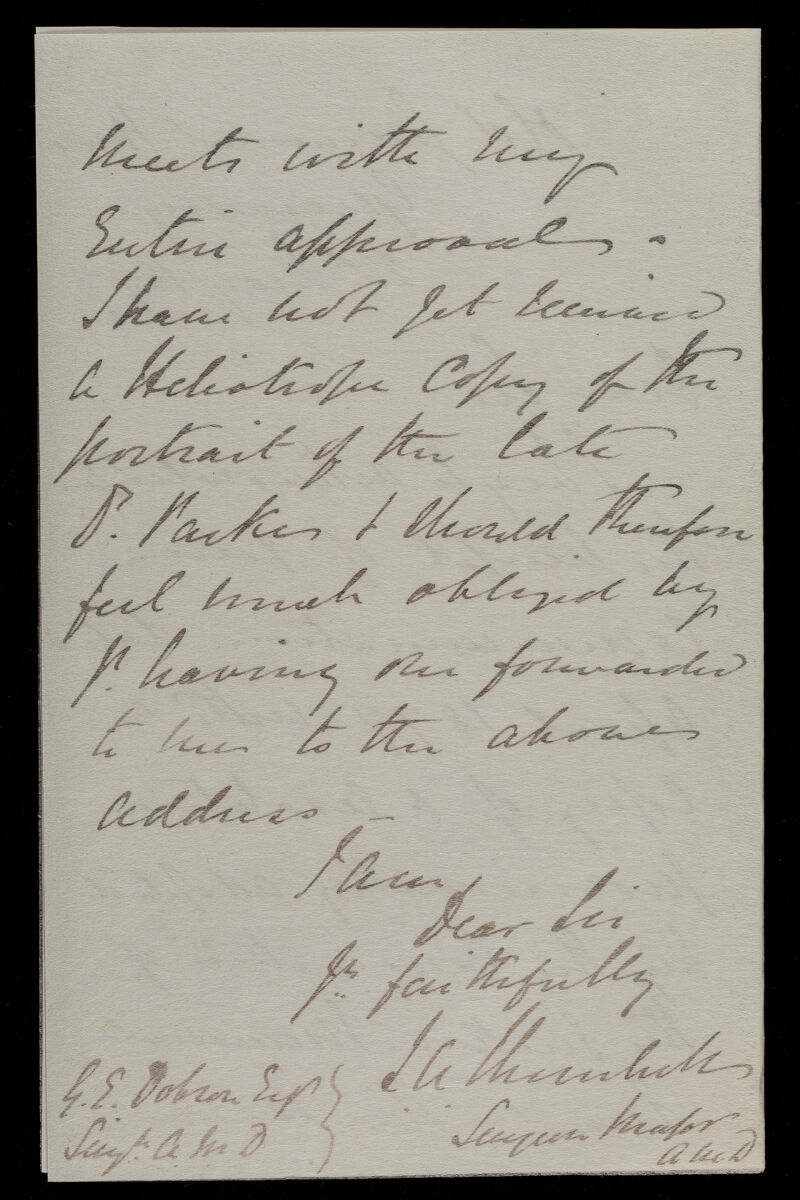 meets with my
Entire approval.
I have not yet received
a Heliotrope Copy of the
portrait of the late
Dr. Parkes & should therefore
feel much obliged by
yr. having one forwarded
to me to the above
address –
I am,
Dear Sir
Yrs. faithfully
J A
G. E. Dobson Esqr
Surgn. A. M. D
Surgeon Major
A M D